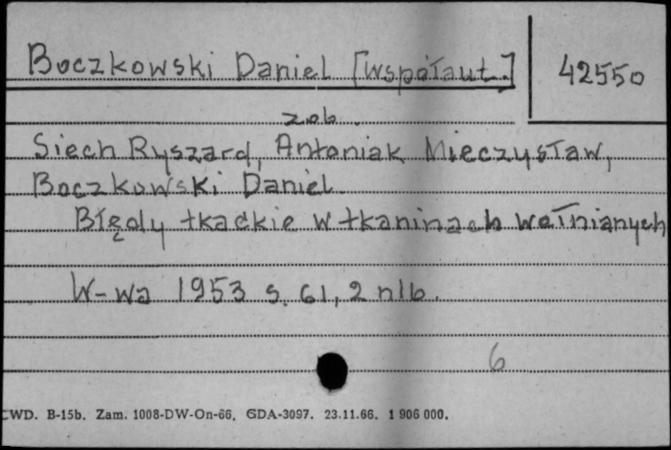 Boczkowski Daniel [współaut.]
42550
zob.
Siech Ryszard, Antoniak Mieczysław,
Boczkowski Daniel
Błędy tkackie w tkaninach wełnianych
W-wa 1953 s. 61, 2 nlb.
6
CWD. B-15b. Zam. 1008-DW-On-66. GDA-3097. 23.11.66. 1 906 000.